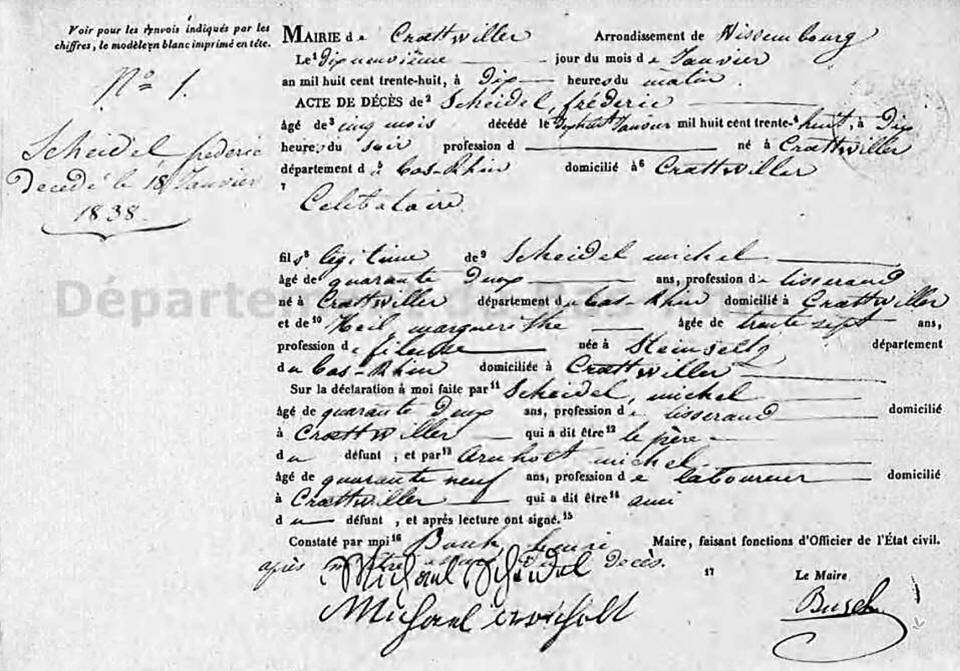 Voir pour les renvois indiqués par les
chiffres, le modèle en blanc imprimé en tête.
N° 1.
Scheidel, frederic
Decedé le 18 Janvier
1838.
MAIRIE de Crœttwiller Arrondissement de Wissembourg
Le dix neuvième jour du mois de Janvier
an mil huit cent trente-huit, à Dix heures du matin.
ACTE DE DÉCÈS de² Scheidel, fréderic
âgé de³ cinq mois décédé le Janvier mil huit cent trente-⁴huit, à Dix
heures du soir profession d né à Crœttwiller
département d⁵ bas-Rhin domicilié à⁶ Crœttwiller
⁷
Celibataire.
fils⁸ légitime de⁹ Scheidel michel
âgé de quarante Deux ans, profession de tisserand
né à Crœttwiller département du bas-Rhin domicilié à Crœttwiller
et de¹⁰ Heil, marguerithe âgée de trente sept ans,
profession de fileuse née à Steinseltz département
du bas-Rhin domiciliée à Crœttwiller
Sur la déclaration à moi faite par¹¹ Scheidel, michel
âgé de quarante Deux ans, profession de tisserand domicilié
à Crœttwiller qui a dit être¹² le père
du défunt, et par¹³ Arnholt michel
âgé de quarante neuf ans, profession de laboureur domicilié
à Crœttwiller qui a dit être¹⁴ ami
du défunt, et après lecture ont signé.¹⁵
Constaté par moi¹⁶ Maire, faisant fonctions d'Officier de l'État civil.
après décès.
Michael Scheidel
¹⁷ Le Maire
Michael
Département du Bas-Rhin